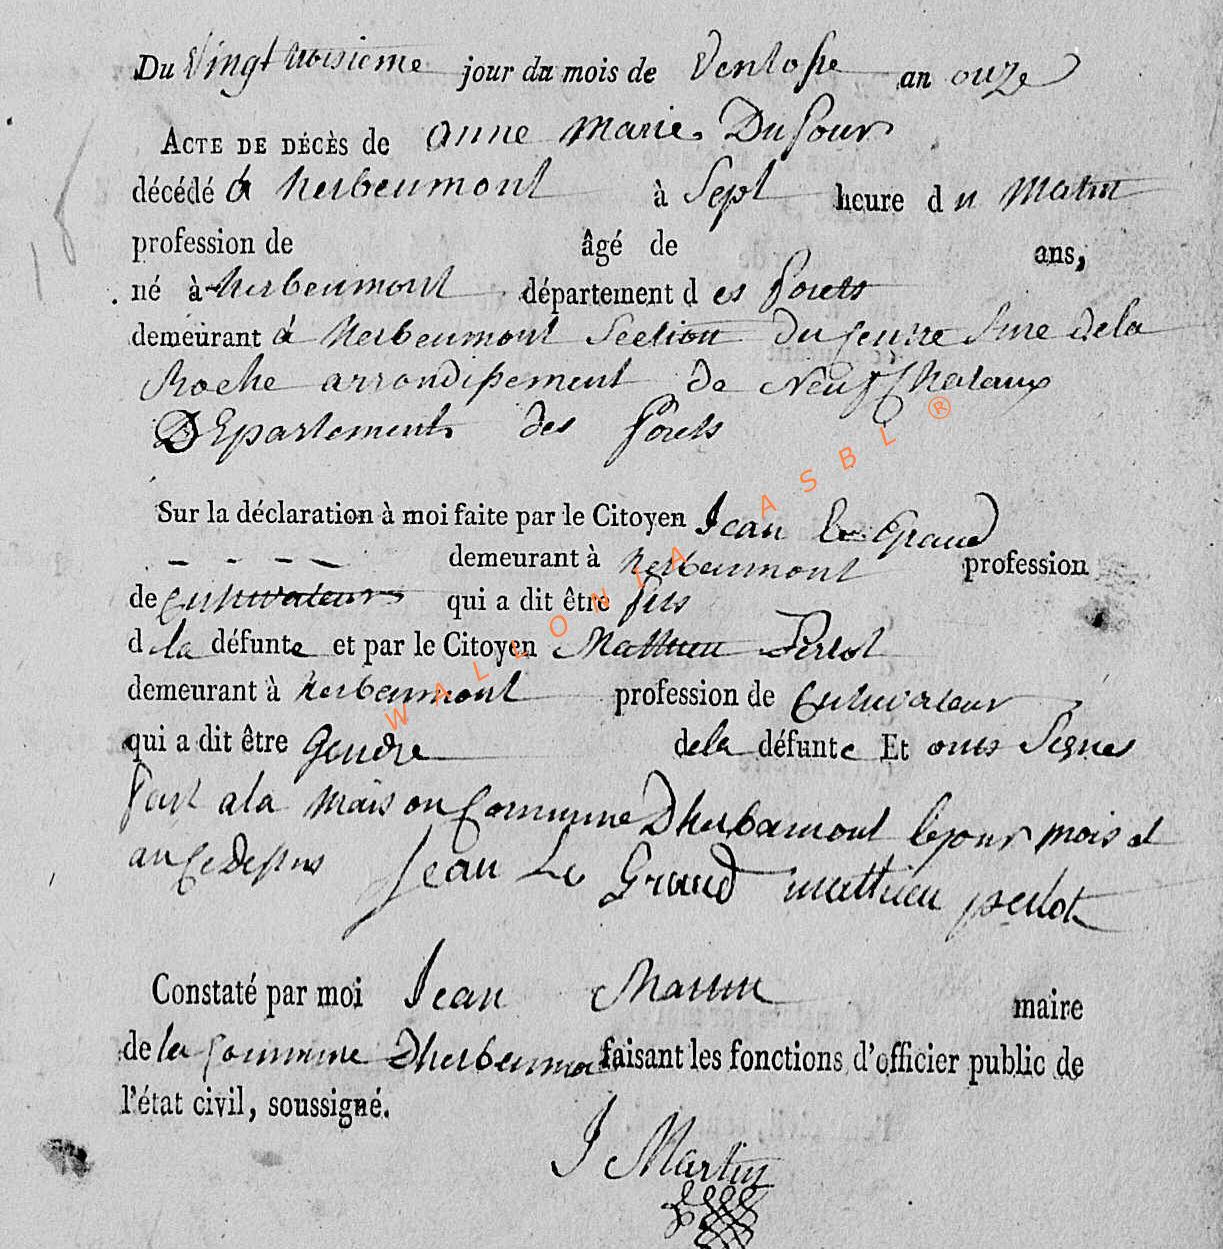 Du Vingt troisieme jour du mois de Ventosse an onze
ACTE DE DÉCÈS de anne Marie Dufour
décédé á herbeumont à Sept heure du Matin
profession de âgé de ans,
né à herbeumont département des forets
demeurant á herbeumont Section du
Roche arrondissement de Neufchataux
DEpartement des forets
Sur la déclaration à moi faite par le Citoyen Jean le Grand
demeurant à herbeumont profession
de Cultivateur qui a dit être fils
d la défunte et par le Citoyen Mathieu Perlot
demeurant à herbeumont profession de Cultivateur
qui a dit être Gendre de la défunte Et onts Signes
fait a la maison Commune Dherbeumont le jour mois et
an Cedessus Jean Le Grand mathieu perlot
Constaté par moi Jean Martin maire
de la Commune Dherbeumon faisant les fonctions d'officier public de
l'état civil, soussigné.
J Martin
WALLONIA ASBL ®